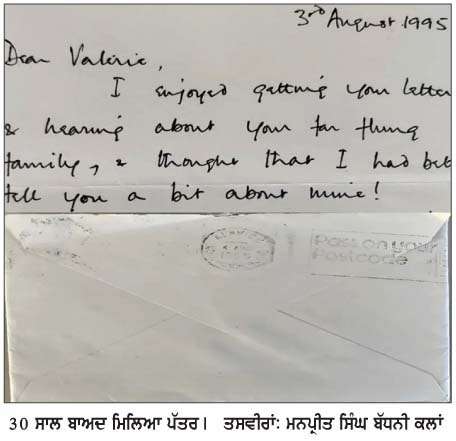 3rd August 1995
Dear Valerie,
I enjoyed getting your letter
& hearing about your far flung
family, & thought that I had bet
tell you a bit about mine!
Pass on your
Postcode
30 ਸਾਲ ਬਾਅਦ ਮਿਲਿਆ ਪੱਤਰ। ਤਸਵੀਰਾਂ: ਮਨਪ੍ਰੀਤ ਸਿੰਘ ਬੱਧਨੀ ਕਲਾਂ